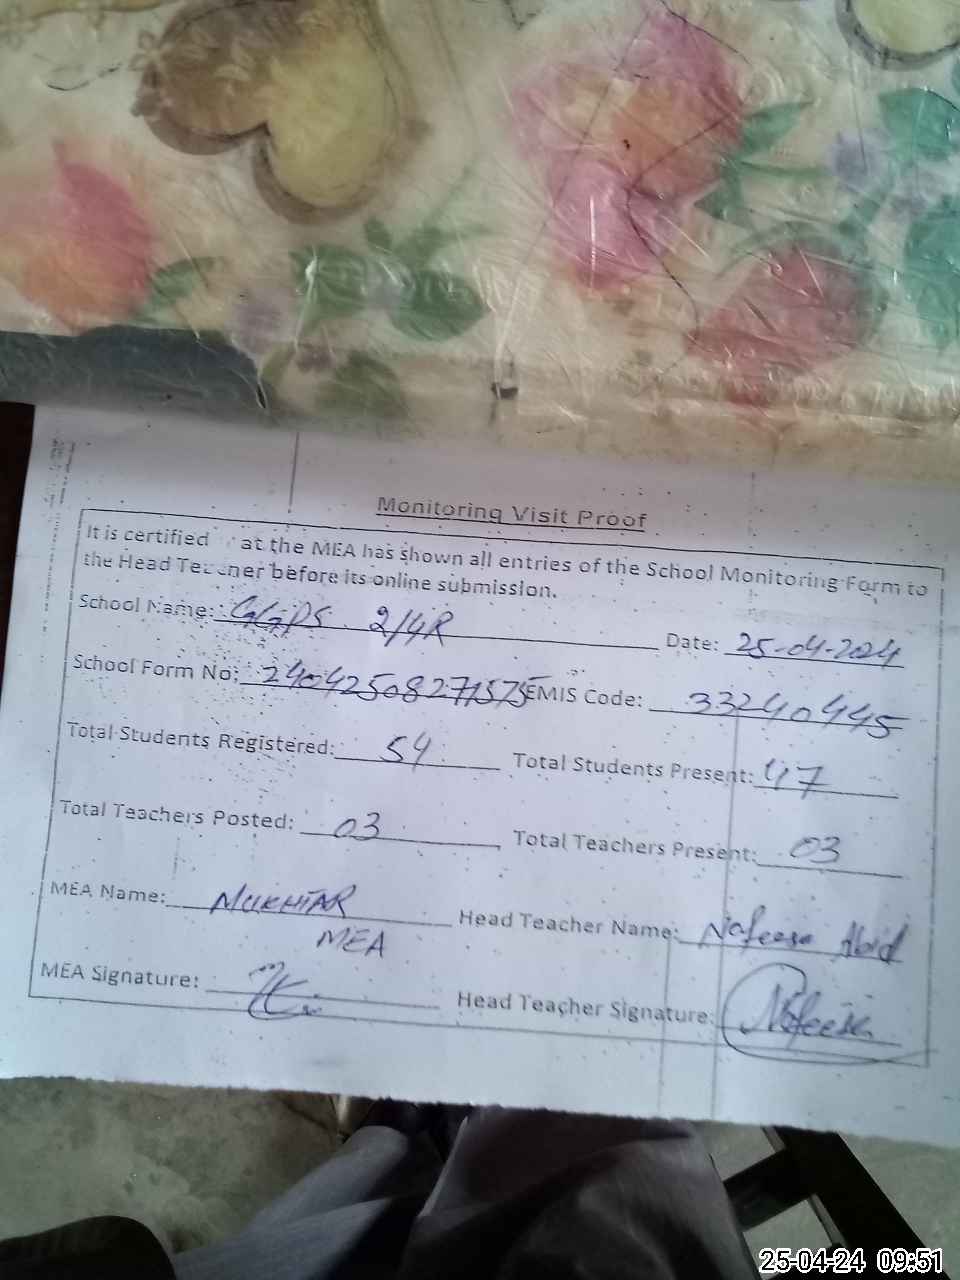 Monitoring Visit Proof
It is certified at the MEA has shown all entries of the School Monitoring Form to
the Head Teacher before its online submission.
School Name: GGPS 2/4R Date: 25-04-2024
School Form No: 24042508271575 EMIS Code: 33240445
Total Students Registered: 54 Total Students Present: 47
Total Teachers Posted: 03 Total Teachers Present: 03
MEA Name: MUKHTAR Head Teacher Name: Nafeesa Abid
MEA
MEA Signature: Head Teacher Signature: Nafeesa
25-04-24 09:51